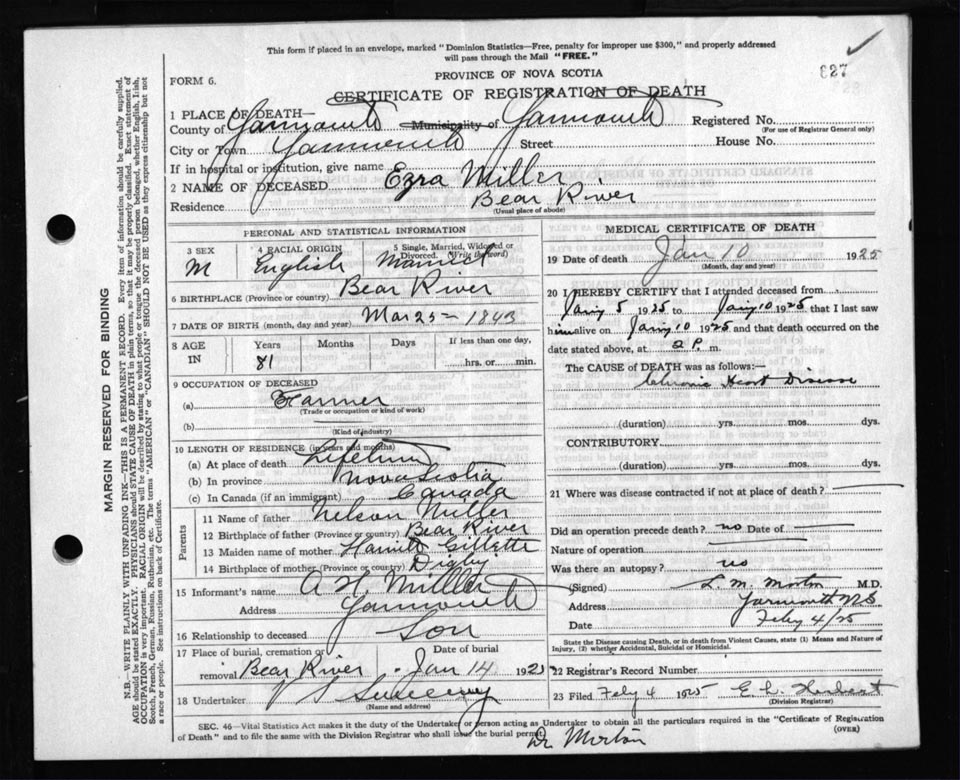 This form if placed in an envelope, marked "Dominion Statistics—Free, penalty for improper use $300," and properly addressed
will pass through the Mail "FREE."
827
FORM 6.
PROVINCE OF NOVA SCOTIA
CERTIFICATE OF REGISTRATION OF DEATH
1 PLACE OF DEATH—
County of Yarmouth Municipality of Yarmouth Registered No.
(For use of Registrar General only)
City or Town Yarmouth Street House No.
If in hospital or institution, give name
2 NAME OF DECEASED Ezra Miller
Residence Bear River
(Usual place of abode)
PERSONAL AND STATISTICAL INFORMATION
3 SEX 4 RACIAL ORIGIN 5 Single, Married, Widowed or
Divorced. (Write the word)
M English Married
6 BIRTHPLACE (Province or country) Bear River
7 DATE OF BIRTH (month, day and year) Mar 25 — 1843
8 AGE Years Months Days If less than one day,
IN 81 hrs. or min.
9 OCCUPATION OF DECEASED
(a) Farmer
(Trade or occupation or kind of work)
(b)
(Kind of industry)
10 LENGTH OF RESIDENCE (in years and months)
(a) At place of death Lifetime
(b) In province Nova Scotia
(c) In Canada (if an immigrant) Canada
Parents
11 Name of father Nelson Miller
12 Birthplace of father (Province or country) Bear River
13 Maiden name of mother Gillette
14 Birthplace of mother (Province or country) Digby
15 Informant's name A H. Miller
Address Yarmouth
16 Relationship to deceased Son
17 Place of burial, cremation or Date of burial
removal Bear River Jan 14 192
18 Undertaker V S Sweeny
(Name and address)
MEDICAL CERTIFICATE OF DEATH
19 Date of death Jan 10 1925
(Month, day and year)
20 I HEREBY CERTIFY that I attended deceased from
Jany 5 1925 to Jany 10 1925 that I last saw
him alive on Jany 10 1925 and that death occurred on the
date stated above, at 2 P. m.
The CAUSE of DEATH was as follows:—
Chronic Heart Disease
(duration) yrs. mos. dys.
CONTRIBUTORY
(duration) yrs. mos. dys.
21 Where was disease contracted if not at place of death?
Did an operation precede death? no Date of —
Nature of operation —
Was there an autopsy? no
(Signed) L. M. Morton M.D.
Address Yarmouth NS
Date Feby 4/25
State the Disease causing Death, or in death from Violent Causes, state (1) Means and Nature of
Injury, (2) whether Accidental, Suicidal or Homicidal.
22 Registrar's Record Number
23 Filed Feby 4 1925 E. L. Herbert
(Division Registrar)
SEC. 46—Vital Statistics Act makes it the duty of the Undertaker or person acting as Undertaker to obtain all the particulars required in the "Certificate of Registration
of Death" and to file the same with the Division Registrar who shall issue the burial permit.
(OVER)
Dr Morton
MARGIN RESERVED FOR BINDING
N.B.—WRITE PLAINLY WITH UNFADING INK—THIS IS A PERMANENT RECORD. Every item of information should be carefully supplied.
AGE should be stated EXACTLY. PHYSICIANS should STATE CAUSE OF DEATH in plain terms, so that it may be properly classified. Exact statement of
OCCUPATION is very important. RACIAL ORIGIN will be described by stating to what people or tongue the deceased person belonged, whether English, Irish,
Scotch, French, German, Russian, Ruthenian, etc. The terms "AMERICAN" or "CANADIAN" SHOULD NOT BE USED as they express citizenship but not
a race or people. See instructions on back of Certificate.